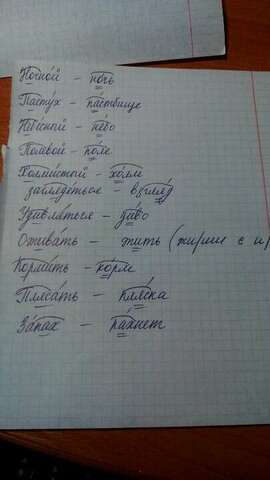 Ночной – ночь
Пастух – пастбище
Небесной – небо
Полевой – поле
Холмистой – холм
заглядеться – взгляд
Удивляться – диво
Оживать – жить (жирни с и)
Кормить – корм
Плясать – пляска
Запах – пахнет